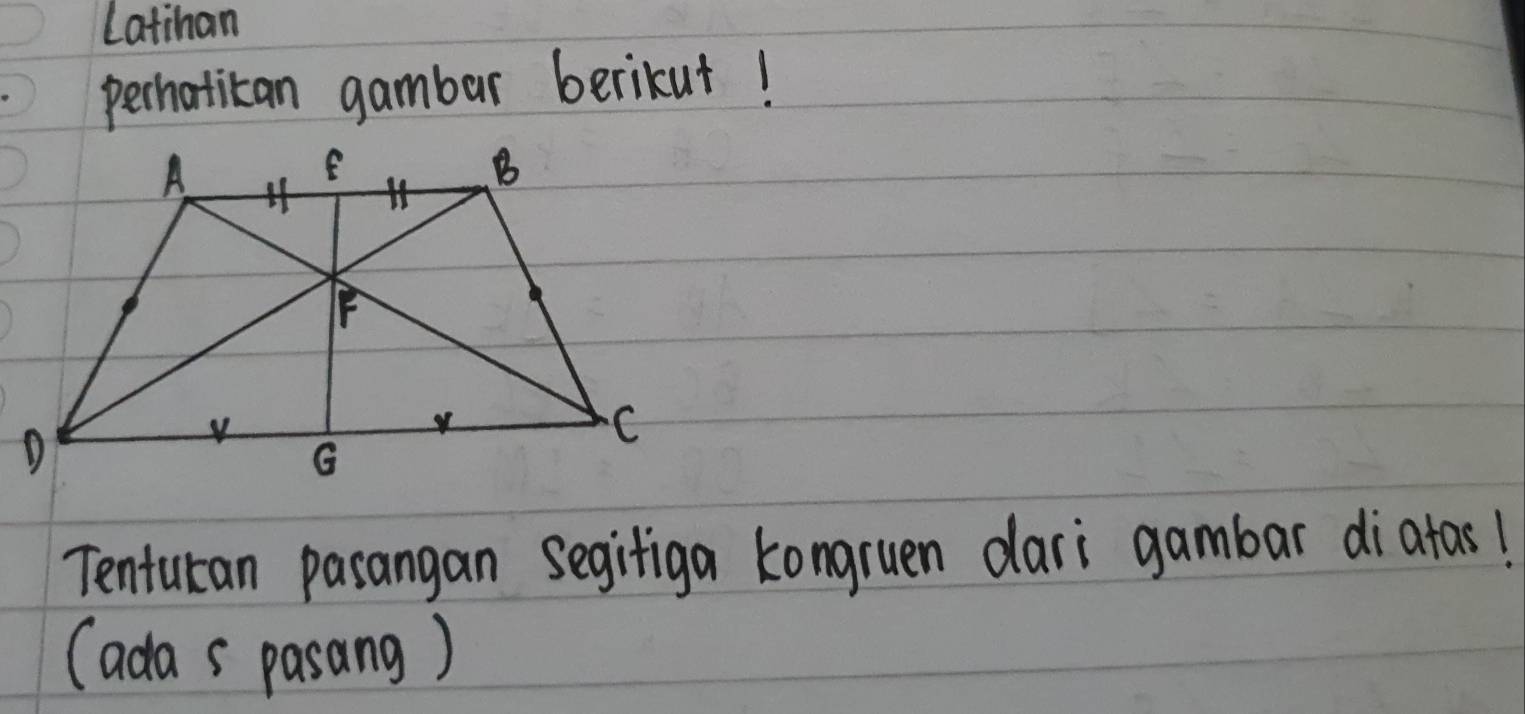 Latihan
perhatikan gambar berikut !
A E B
F
D G C
Tentukan pasangan segitiga kongruen dari gambar di atas !
(ada 5 pasang)